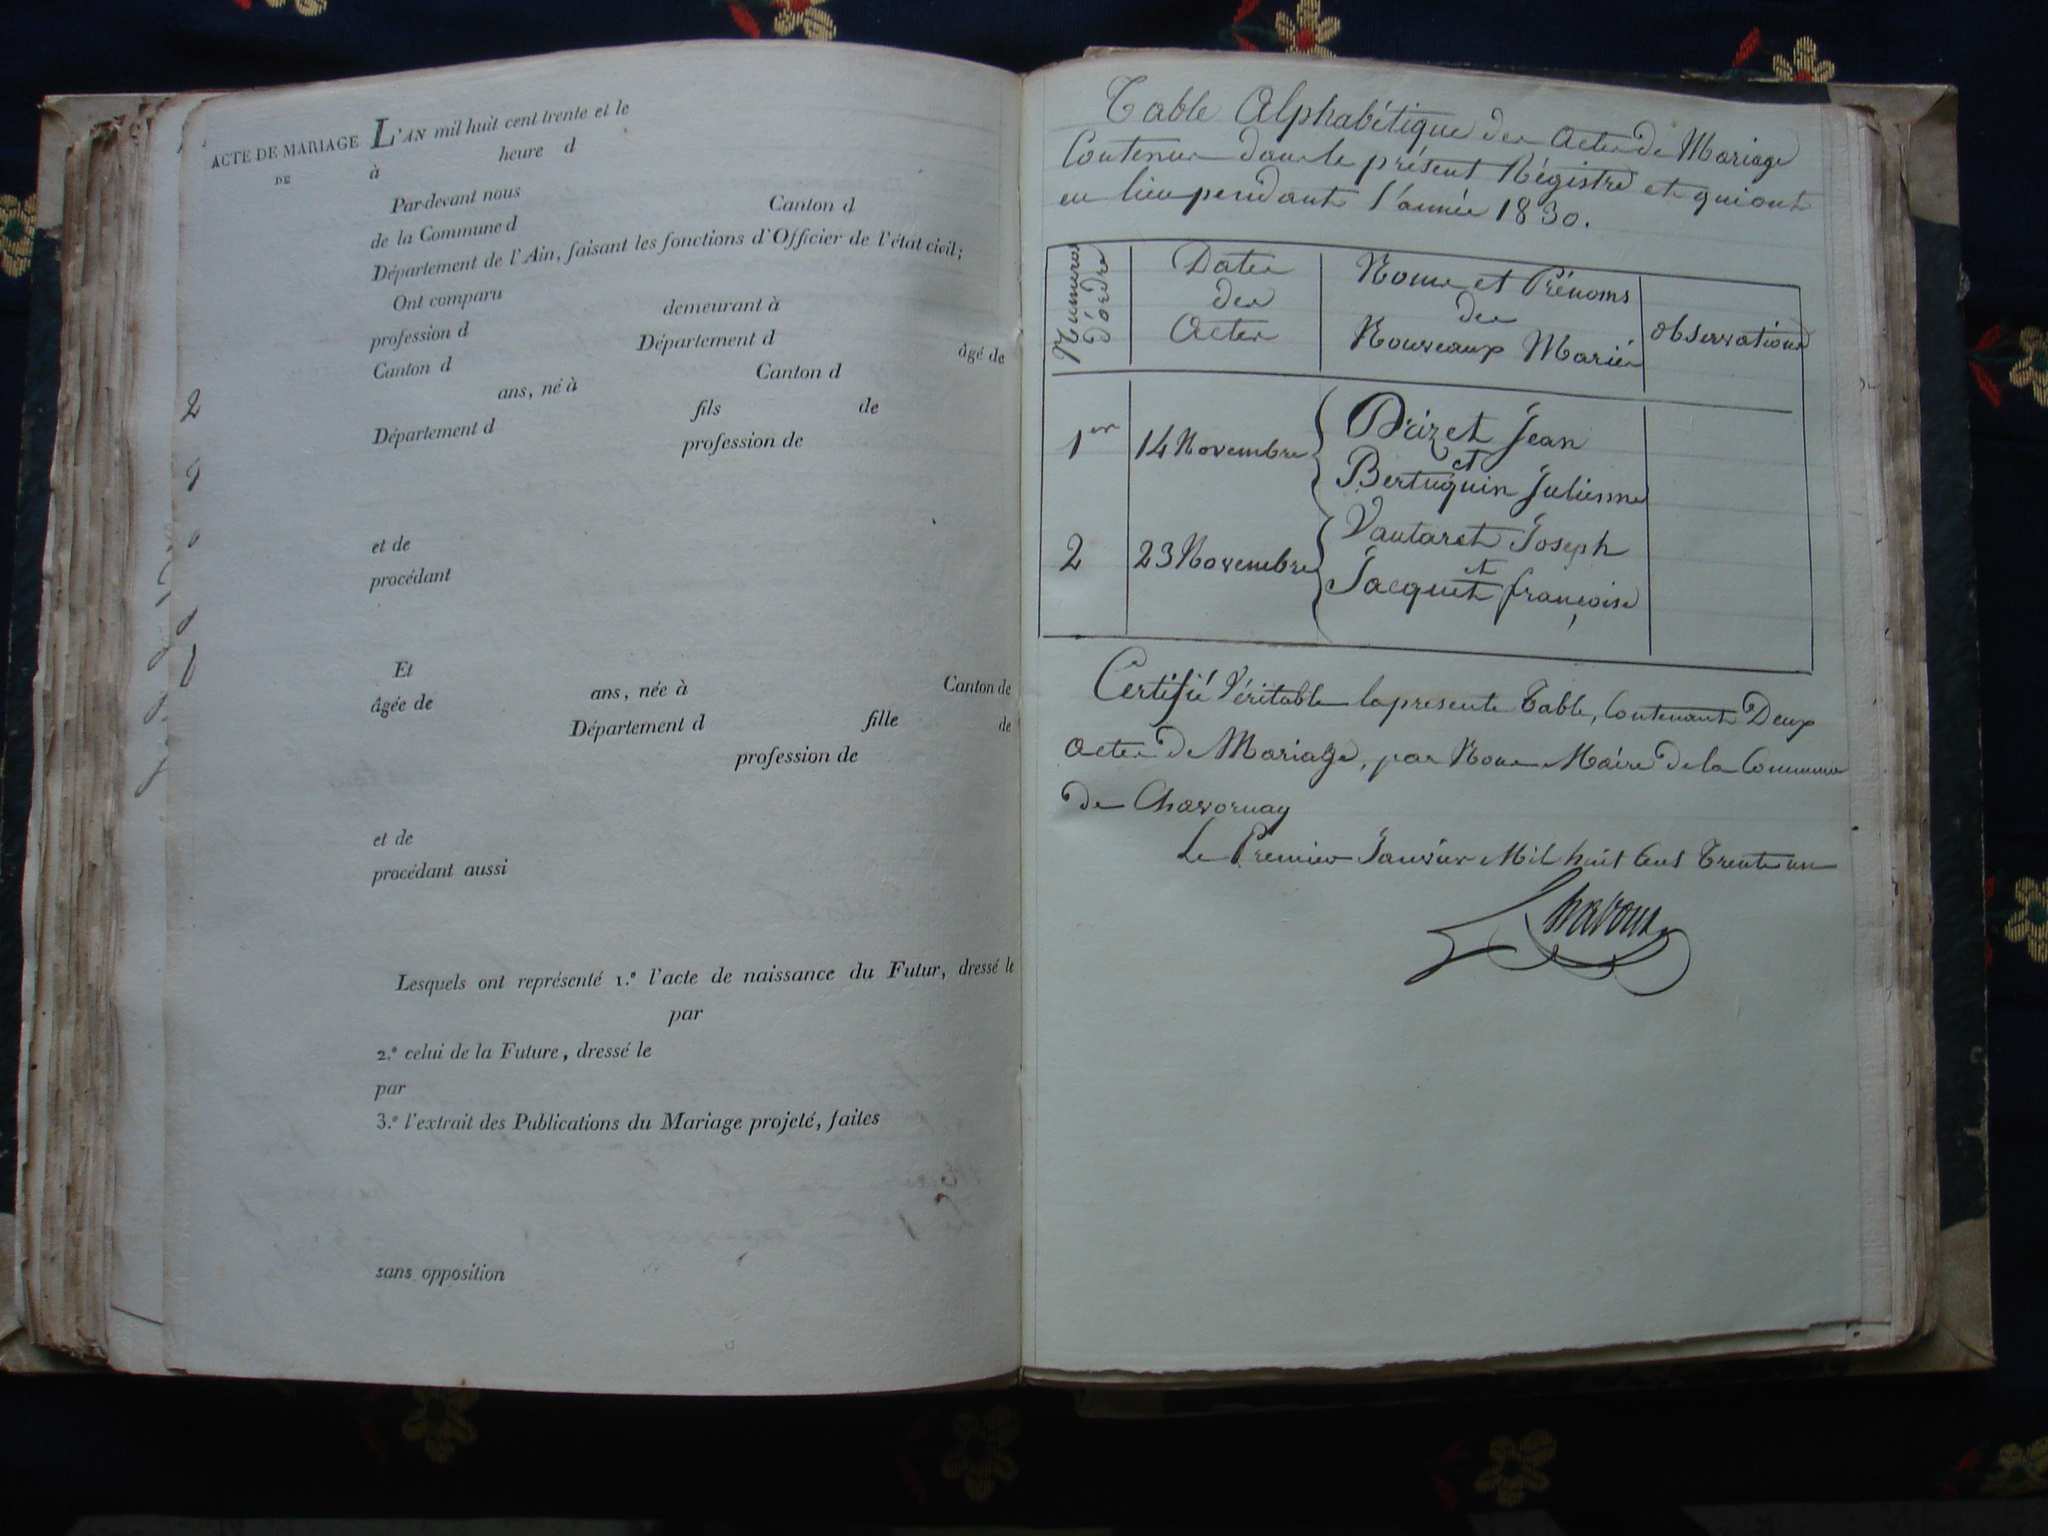 ACTE DE MARIAGE
DE
L'AN mil huit cent trente et le
à heure d
Par-devant nous
de la Commune d Canton d
Département de l'Ain, faisant les fonctions d'Officier de l'état civil;
Ont comparu
profession d demeurant à
Canton d Département d âgé de
ans, né à Canton d
Département d fils de
profession de
et de
procédant
Et
âgée de ans, née à Canton de
Département d fille de
profession de
et de
procédant aussi
Lesquels ont représenté 1.º l'acte de naissance du Futur, dressé le
par
2.º celui de la Future, dressé le
par
3.º l'extrait des Publications du Mariage projeté, faites
sans opposition
Table Alphabétique des Actes de Mariage
Contenus dans le présent Régistre et qui ont
eu lieu pendant l'année 1830.
Numéros d'ordre
Dates des Actes
Noms et Prénoms des Nouveaux Mariés
observations
1er 14 Novembre Drizet Jean
et
Bertuquin Julienne
2 23 Novembre Vautaret Joseph
et
Jacquet françoise
Certifié Véritable la presente Table, Contenant Deux
Actes de Mariage, par Nous Maire de la Commune
de Chavornay
Le Premier Janvier Mil huit Cent Trente un